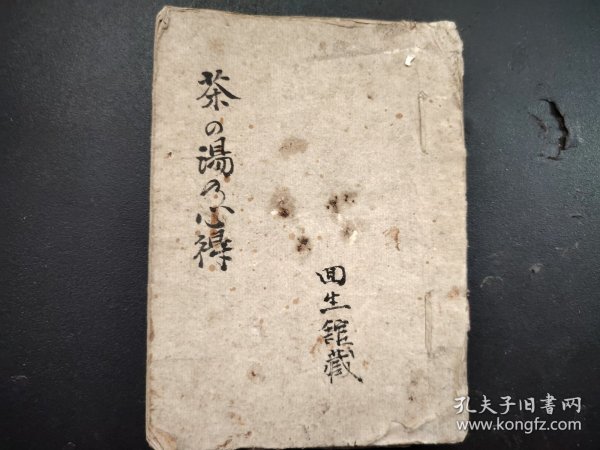 茶の湯の心得
回生館蔵
孔夫子旧书网
www.kongfz.com